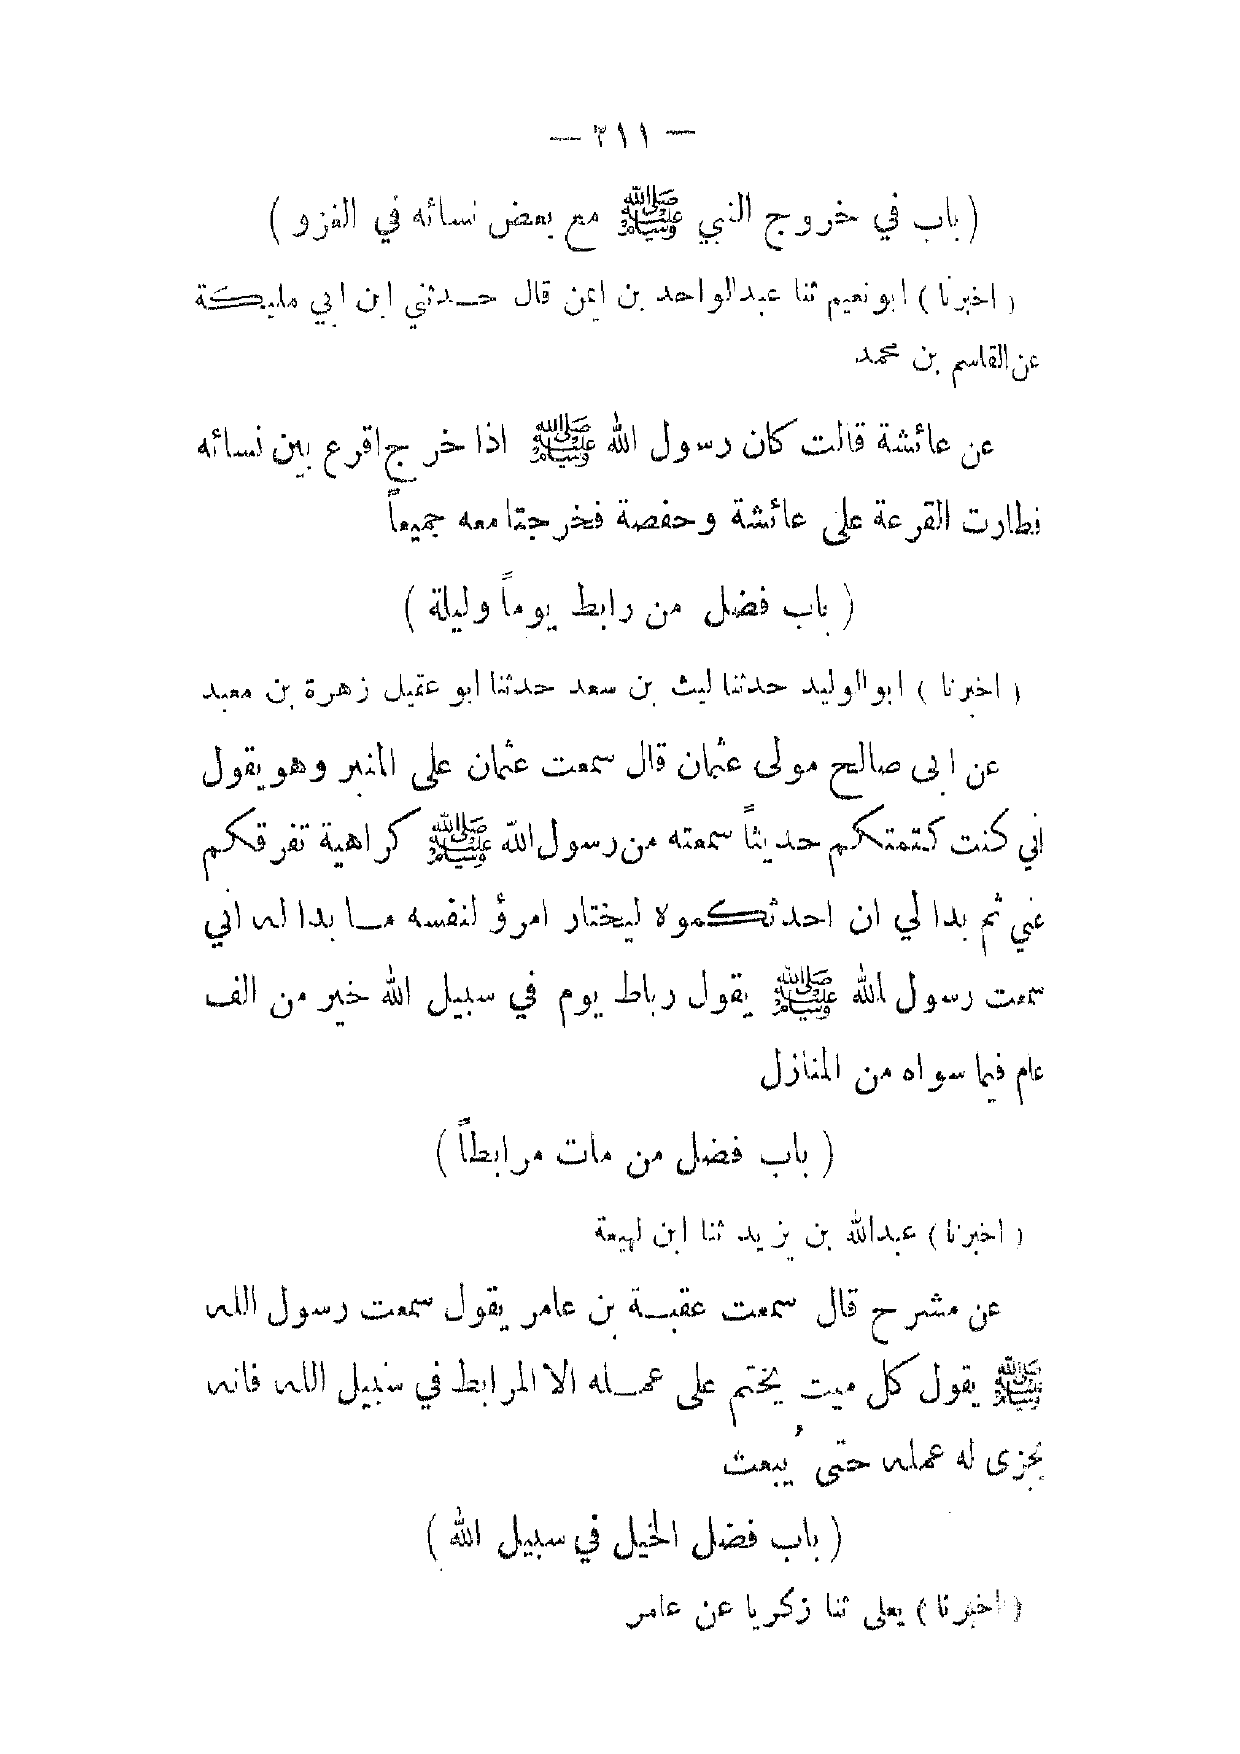 — ٢١١ —
( باب في خروج النبي ﷺ مع بعض نسائه في الغزو )
( اخبرنا ) ابو نعيم ثنا عبدالواحد بن ايمن قال حدثني ابن ابي مليكة
عن القاسم بن محمد
عن عائشة قالت كان رسول الله ﷺ اذا خرج اقرع بين نسائه
فطارت القرعة على عائشة وحفصة فخرجتا معه جميعاً
( باب فضل من رابط يوماً وليلة )
( اخبرنا ) ابو الوليد حدثنا ليث بن سعد حدثنا ابو عقيل زهرة بن معبد
عن ابى صالح مولى عثمان قال سمعت عثمان على المنبر وهو يقول
اني كنت كتمتكم حديثاً سمعته من رسول الله ﷺ كراهية تفرقكم
عني ثم بدا لي ان احدثكموه ليختار امرؤ لنفسه ما بدا له اني
سمعت رسول الله ﷺ يقول رباط يوم في سبيل الله خير من الف
عام فيما سواه من المنازل
( باب فضل من مات مرابطاً )
( اخبرنا ) عبدالله بن يزيد ثنا ابن لهيعة
عن مشرح قال سمعت عقبة بن عامر يقول سمعت رسول الله
ﷺ يقول كل ميت يختم على عمله الا المرابط في سبيل الله فانه
يجزى له عمله حتى يُبعث
( باب فضل الخيل في سبيل الله )
( اخبرنا ) يعلى ثنا زكريا عن عامر